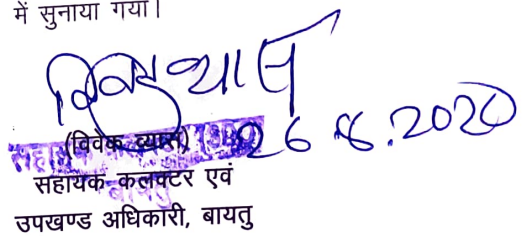 में सुनाया गया।
26.8.2020
(विवेक व्यास)
सहायक कलक्टर एवं
उपखण्ड अधिकारी, बायतु